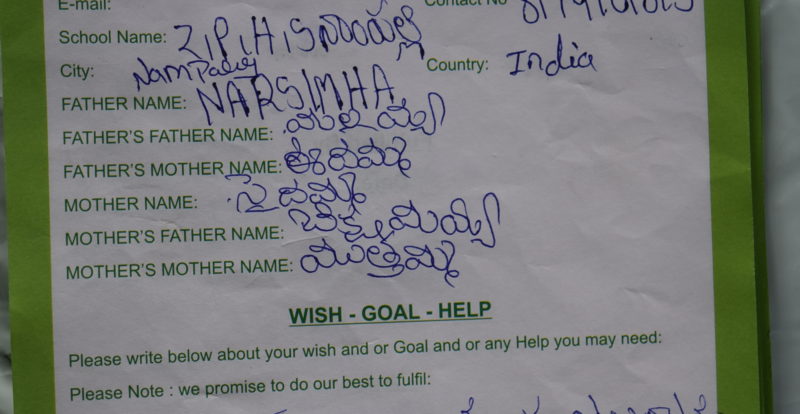 E-mail:
Contact No
School Name: Z.P.H.S నాంపల్లి
City: Nampally Country: India
FATHER NAME: NARSIMHA
FATHER'S FATHER NAME: మల్లయ్య
FATHER'S MOTHER NAME: ఈదమ్మ
MOTHER NAME: సైదమ్మ
MOTHER'S FATHER NAME: బిక్షమయ్య
MOTHER'S MOTHER NAME: ముత్తమ్మ
WISH - GOAL - HELP
Please write below about your wish and or Goal and or any Help you may need:
Please Note : we promise to do our best to fulfil: